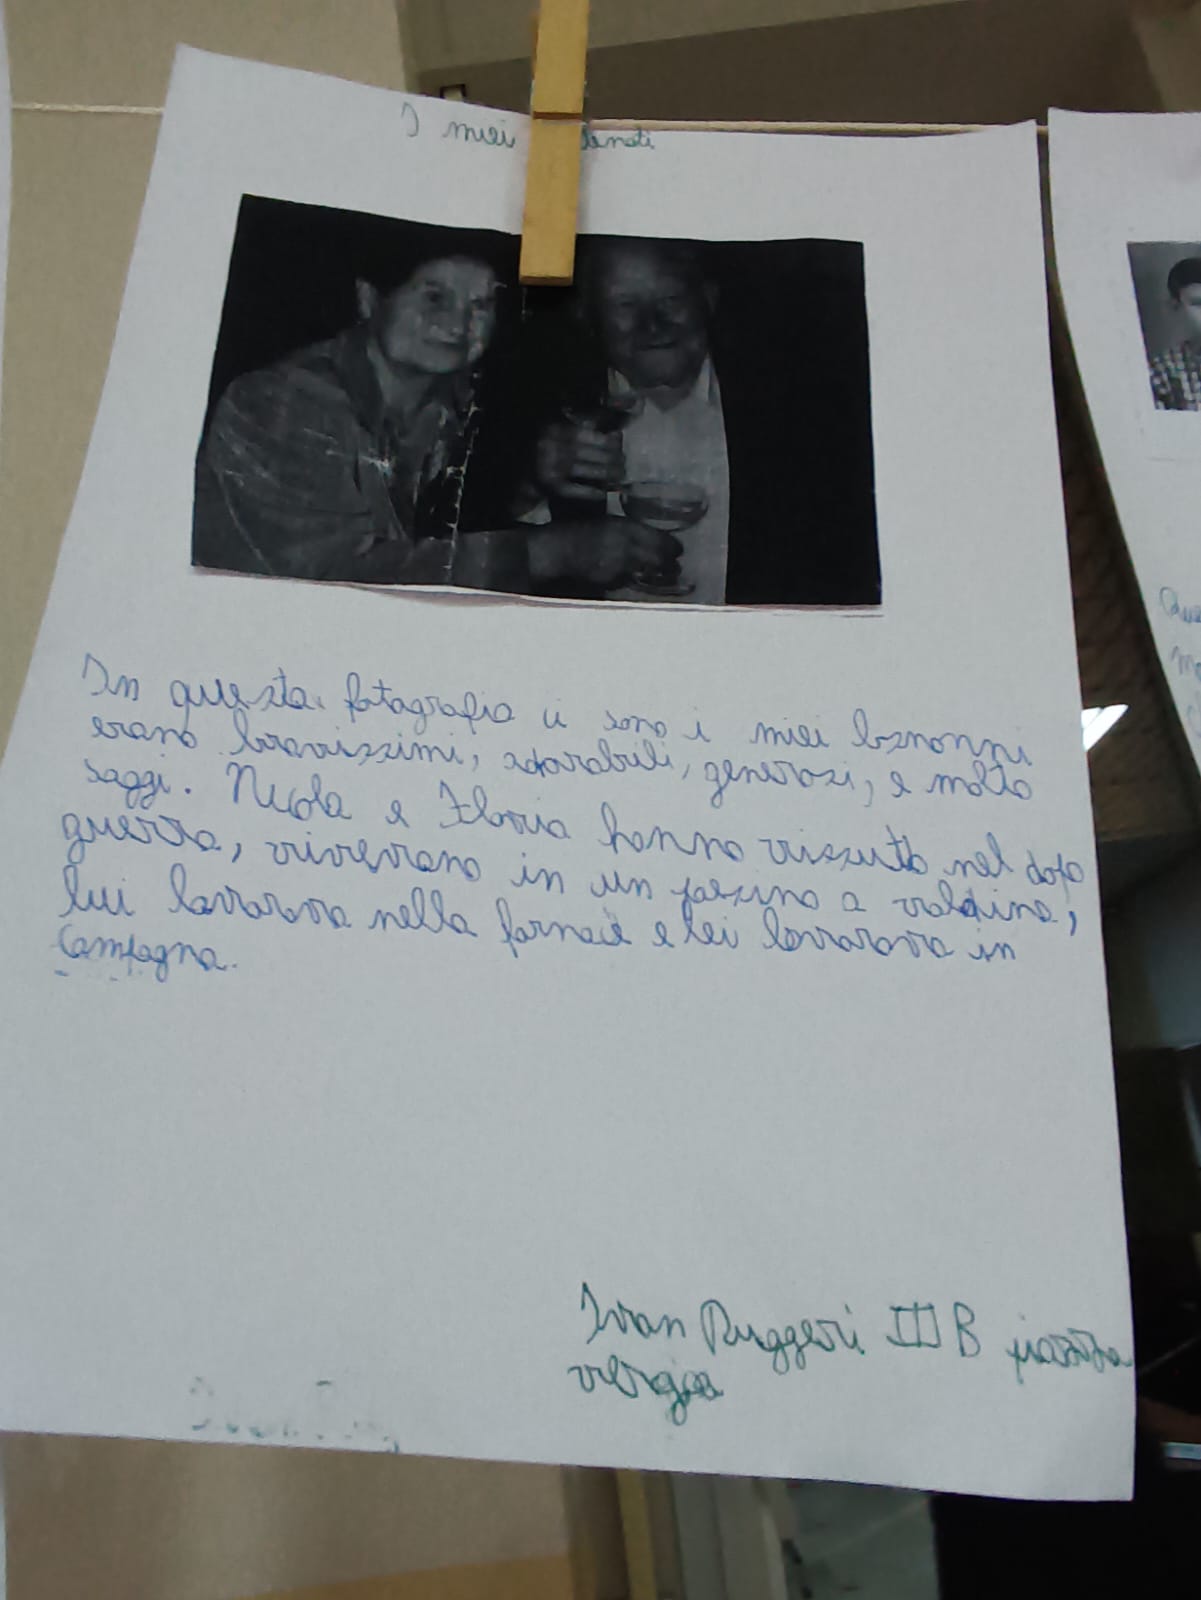 I miei denati
In questa fotografia ci sono i miei bisnonni
erano bravissimi, adorabili, generosi, e molto
saggi. Nicola e Ilaria hanno vissuto nel dopo
guerra, vivevano in un paesino a valdina,
lui lavorava nella fornace e lei lavorava in
campagna.
Ivan Ruggeri III B piazza
vergia
Que